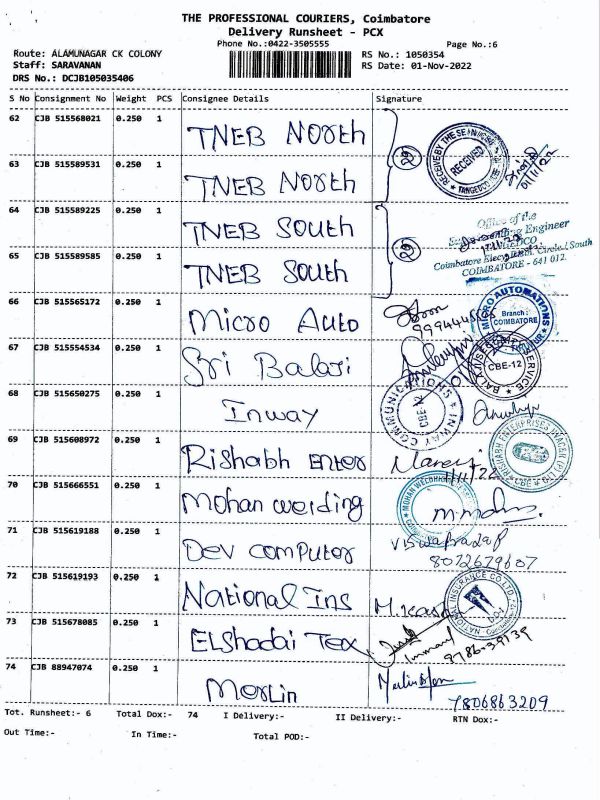 THE PROFESSIONAL COURIERS, Coimbatore
Delivery Runsheet - PCX
Phone No.:0422-3505555 Page No.:6
Route: ALAMUNAGAR CK COLONY RS No.: 1050354
Staff: SARAVANAN RS Date: 01-Nov-2022
DRS No.: DCJB105035406
S No Consignment No Weight PCS Consignee Details Signature
62 CJB 515568021 0.250 1 TNEB North
63 CJB 515589531 0.250 1 TNEB North
RECEIVED
64 CJB 515589225 0.250 1 TNEB South
Office of the
Engineer
65 CJB 515589585 0.250 1 TNEB South
Coimbatore Elecy. Circle/South
COIMBATORE - 641 012.
66 CJB 515565172 0.250 1 Micro Auto
MICRO AUTOMATIONS
Branch:
COIMBATORE
67 CJB 515554534 0.250 1 Sri Balaji
CBE-12
68 CJB 515650275 0.250 1 Inway
INWAY COMMUNICATIONS
CBE-12
69 CJB 515608972 0.250 1 Rishabh Enter
RISHABH ENTERPRISES
70 CJB 515666551 0.250 1 Mohan welding
71 CJB 515619188 0.250 1 Dev computer
8072679607
72 CJB 515619193 0.250 1 National Ins
NATIONAL INSURANCE CO.LTD.
73 CJB 515678085 0.250 1 Elshadai Tex
74 CJB 88947074 0.250 1 Merlin
7806863209
Tot. Runsheet:- 6 Total Dox:- 74 I Delivery:- II Delivery:- RTN Dox:-
Out Time:- In Time:- Total POD:-